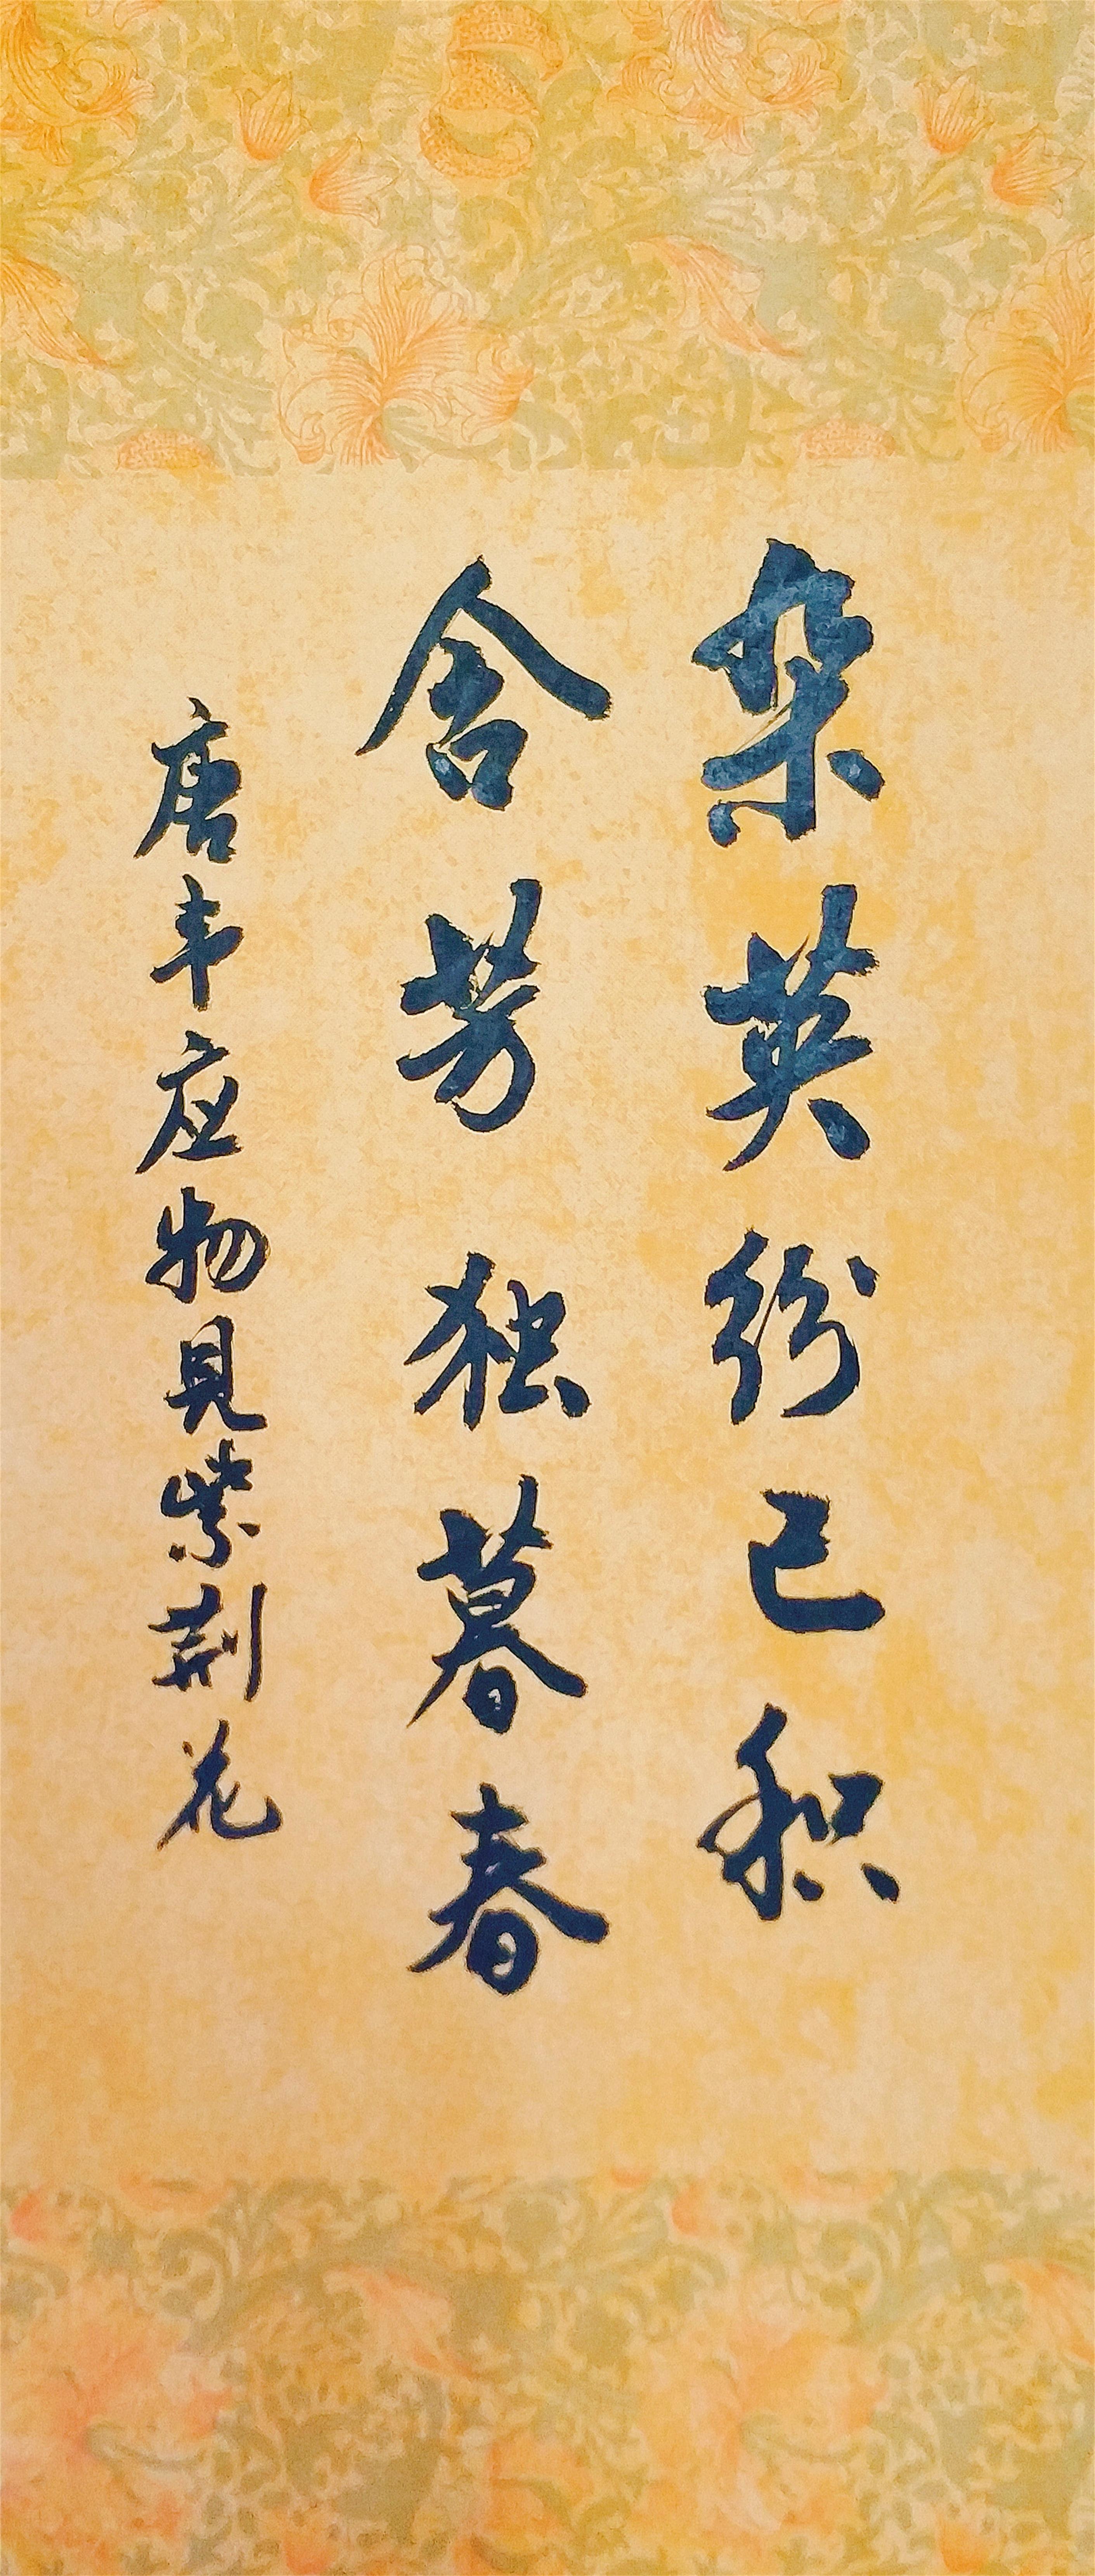 杂英纷已积
含芳独暮春
唐韦应物見紫荆花